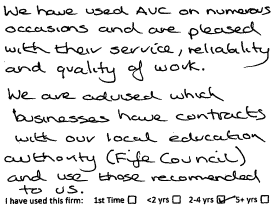 We have used AVC on numerous
occasions and are pleased
with their service, reliability
and quality of work.
We are advised which
businesses have contracts
with our local education
authority (Fife Council)
and use those recommended
to us.
I have used this firm: 1st Time ☐ <2 yrs ☐ 2-4 yrs ☑ 5+ yrs ☐